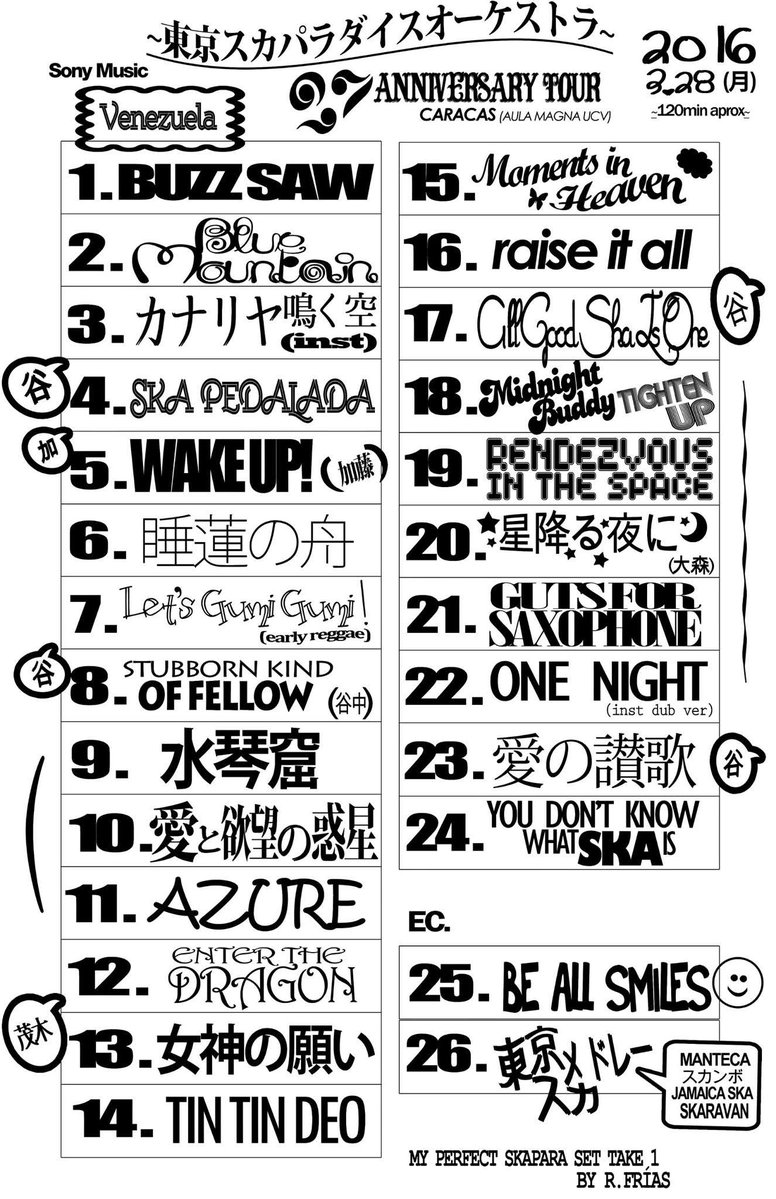 ~東京スカパラダイスオーケストラ~
2016
3.28 (月)
~120min aprox~
Sony Music
Venezuela
27 ANNIVERSARY TOUR
CARACAS (AULA MAGNA UCV)
1. BUZZ SAW
2. Blue
Mountain
3. カナリヤ鳴く空
(inst)
谷
4. SKA PEDALADA
加
5. WAKE UP! (加藤)
6. 睡蓮の舟
7. Let's Gumi Gumi!
(early reggae)
谷
8. STUBBORN KIND
OF FELLOW (谷中)
9. 水琴窟
10. 愛と欲望の惑星
11. AZURE
12. ENTER THE
DRAGON
茂木
13. 女神の願い
14. TIN TIN DEO
15. Moments in
Heaven
16. raise it all
谷
17. All Good Ska Is One
18. Midnight
Buddy TIGHTEN
UP
19. RENDEZVOUS
IN THE SPACE
20. 星降る夜に
(大森)
21. GUTS FOR
SAXOPHONE
22. ONE NIGHT
(inst dub ver)
23. 愛の讃歌
谷
24. YOU DON'T KNOW
WHAT SKA IS
EC.
25. BE ALL SMILES
26. 東京メドレー
スカ
MANTECA
スカンボ
JAMAICA SKA
SKARAVAN
MY PERFECT SKAPARA SET TAKE 1
BY R.FRÍAS